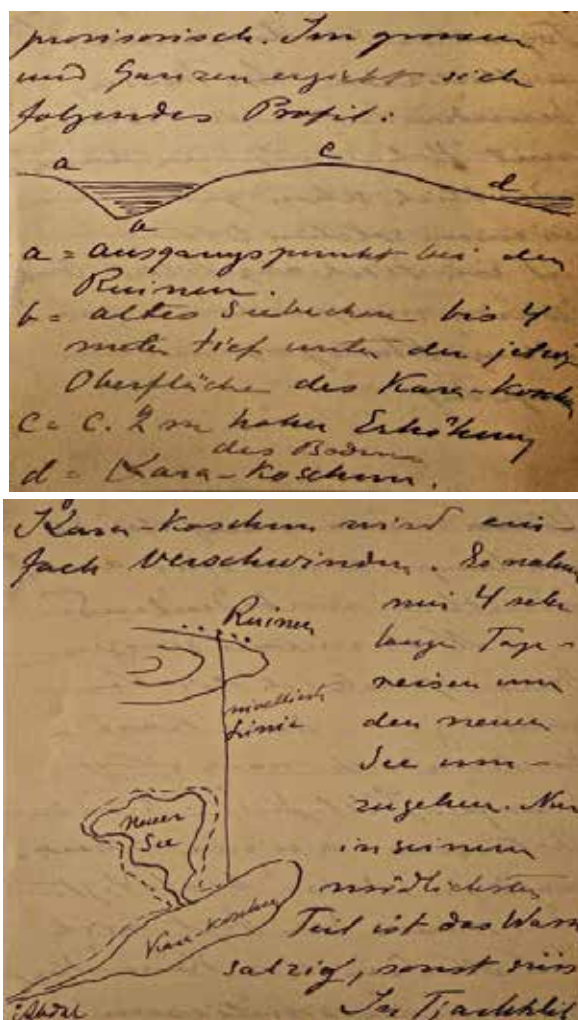 provisorisch. Im grossen
und Ganzen ergiebt sich
folgendes Profil:
a c d
a
a = Ausgangspunkt bei den
Ruinen.
b = altes Seebecken bis 4
meter tief unter der jetzig
Oberfläche des Kara-Koschun
c = c. 2 m hoher Erhöhung
des Bodens
d = Kara-Koschun.
Kara-Koschun wird ein-
fach verschwinden. Es nahm
mir 4 sehr
lange Tage-
reisen um
den neuen
See um-
zugehen. Nur
in seinem
Teil ist das Wass
salzig, sonst süss
In Tjarkhlik
Ruinen
Linie
neuer
See
Kara-Koschun
Abdal